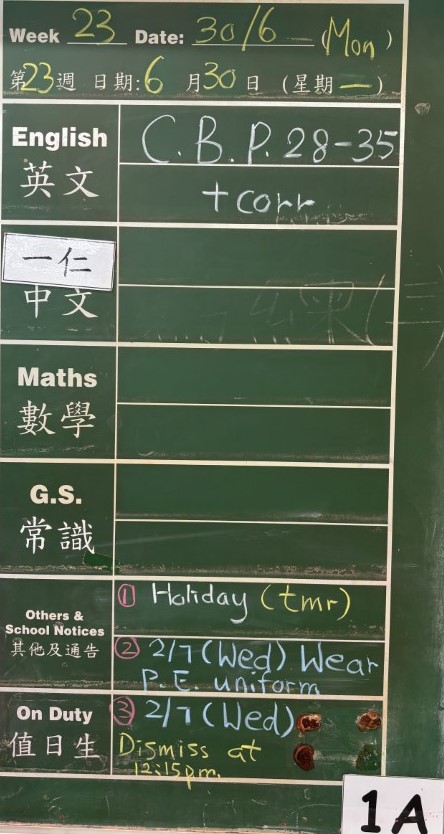 Week 23 Date: 30/6 (Mon)
第23週 日期:6月30日 (星期一)
English
英文
C.B.P.28-35
+corr
一仁
中文
Maths
數學
G.S.
常識
Others &
School Notices
其他及通告
① Holiday (tmr)
② 2/7 (Wed) Wear
P.E. uniform
On Duty
值日生
③ 2/7 (Wed)
Dismiss at
12:15p.m.
1A